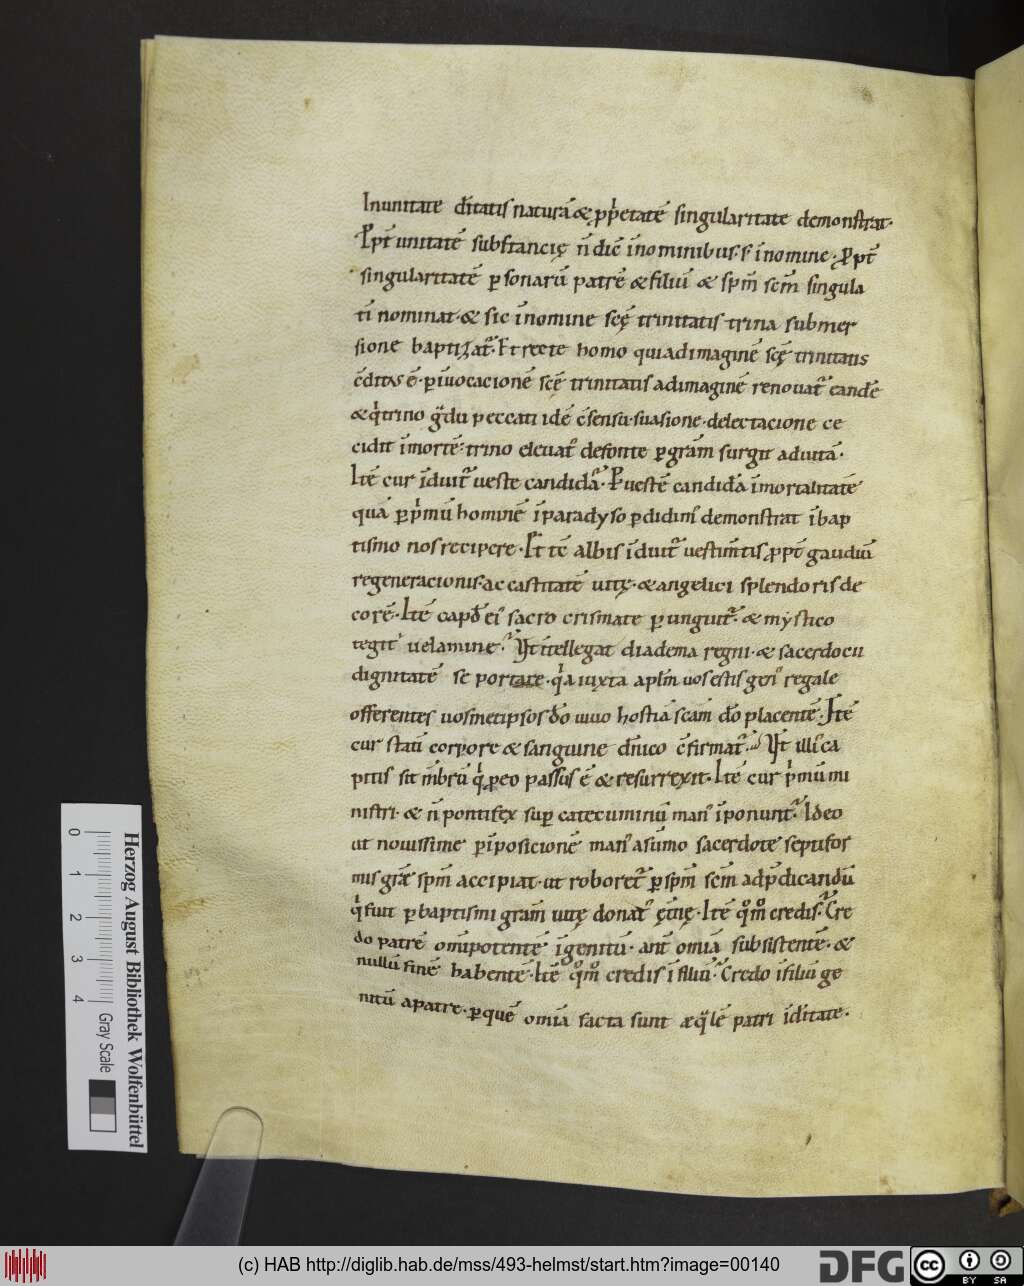 Inunitate d̄itatis naturā & p̱p̍etatē singularitate demonstrat·
P̱pt̄ unitatē substancię n̄ dic̄ īnominibus· s; īnomine· P̱pt̄
singularitatē ꝑsonarū patrē & filiū & sp̄m sc̄m singula
tī nominat· & sic īnomine sc̄ę trinitatis trina submer
sione baptizat᷑· Et recte homo qui adimaginē sc̄ę trinitatis
c̄ditus ē· ꝑīuocacionē sc̄ę trinitatis adimaginē renouat᷑ eandē
& q̍ trino g̍du peccati idē c̄sensu· suasione· delectacione ce
cidit īmortē· trino eleuat᷑ defonte ꝑgrām surgit aduitā·
Itē cur īduit᷑ ueste candida· P̱ uestē candidā īmortalitatē
quā ꝑp̍mū hominē īparadyso ꝑdidim᷒ demonstrat ībap
tismo nos recipere· Et tē albis īduit᷑ uestim̄tis p̱pt̄ gaudiū
regeneracionis· ac castitatē uitę· & angelici splendoris de
corē· Itē cap᷒ ei᷒ sacro crismate ꝑunguit᷑· & mystico
tegit᷑ uelamine· Ut ītellegat diadema regni· & sacerdocii
dignitatē se portare· q̍a iuxta apl̄m uos estis gen᷒ regale
offerentes uosmetipsos dō uiuo hostiā sc̄am dō placentē· Itē
cur statī corpore & sanguine dn̄ico c̄firmat᷑· Ut illi᷒ ca
pitis sit mb̄rū q̍ p̱ eo passus ē & resurrexit· Itē cur p̍mū mi
nistri· & n̄ pontifex suꝑ catecuminū man᷒ īponunt᷑· Ideo
ut nouissime ꝑīposicionē man᷒ a sūmo sacerdote septifor
mis grā̄e sp̄m accipiat· ut roboret᷑ ꝑsp̄m sc̄m adp̄dicandū
q̍ fuit ꝑbaptismi grām uitę donat᷒ ęt̄nę· Itē q̊m̊ credis· Cre
do patrē om̄ipotentē īgenitū· ant̄ om̄ia subsistentē· &
nullū finē habentē· Itē q̊m̊ credis ī filiū· Credo ī filiū ge
nitū a patre· ꝑ quē om̄ia facta sunt æq̄lē patri īd̄itate·
Herzog August Bibliothek Wolfenbüttel
0 1 2 3 4 Gray Scale
(c) HAB http://diglib.hab.de/mss/493-helmst/start.htm?image=00140
DFG
cc BY SA